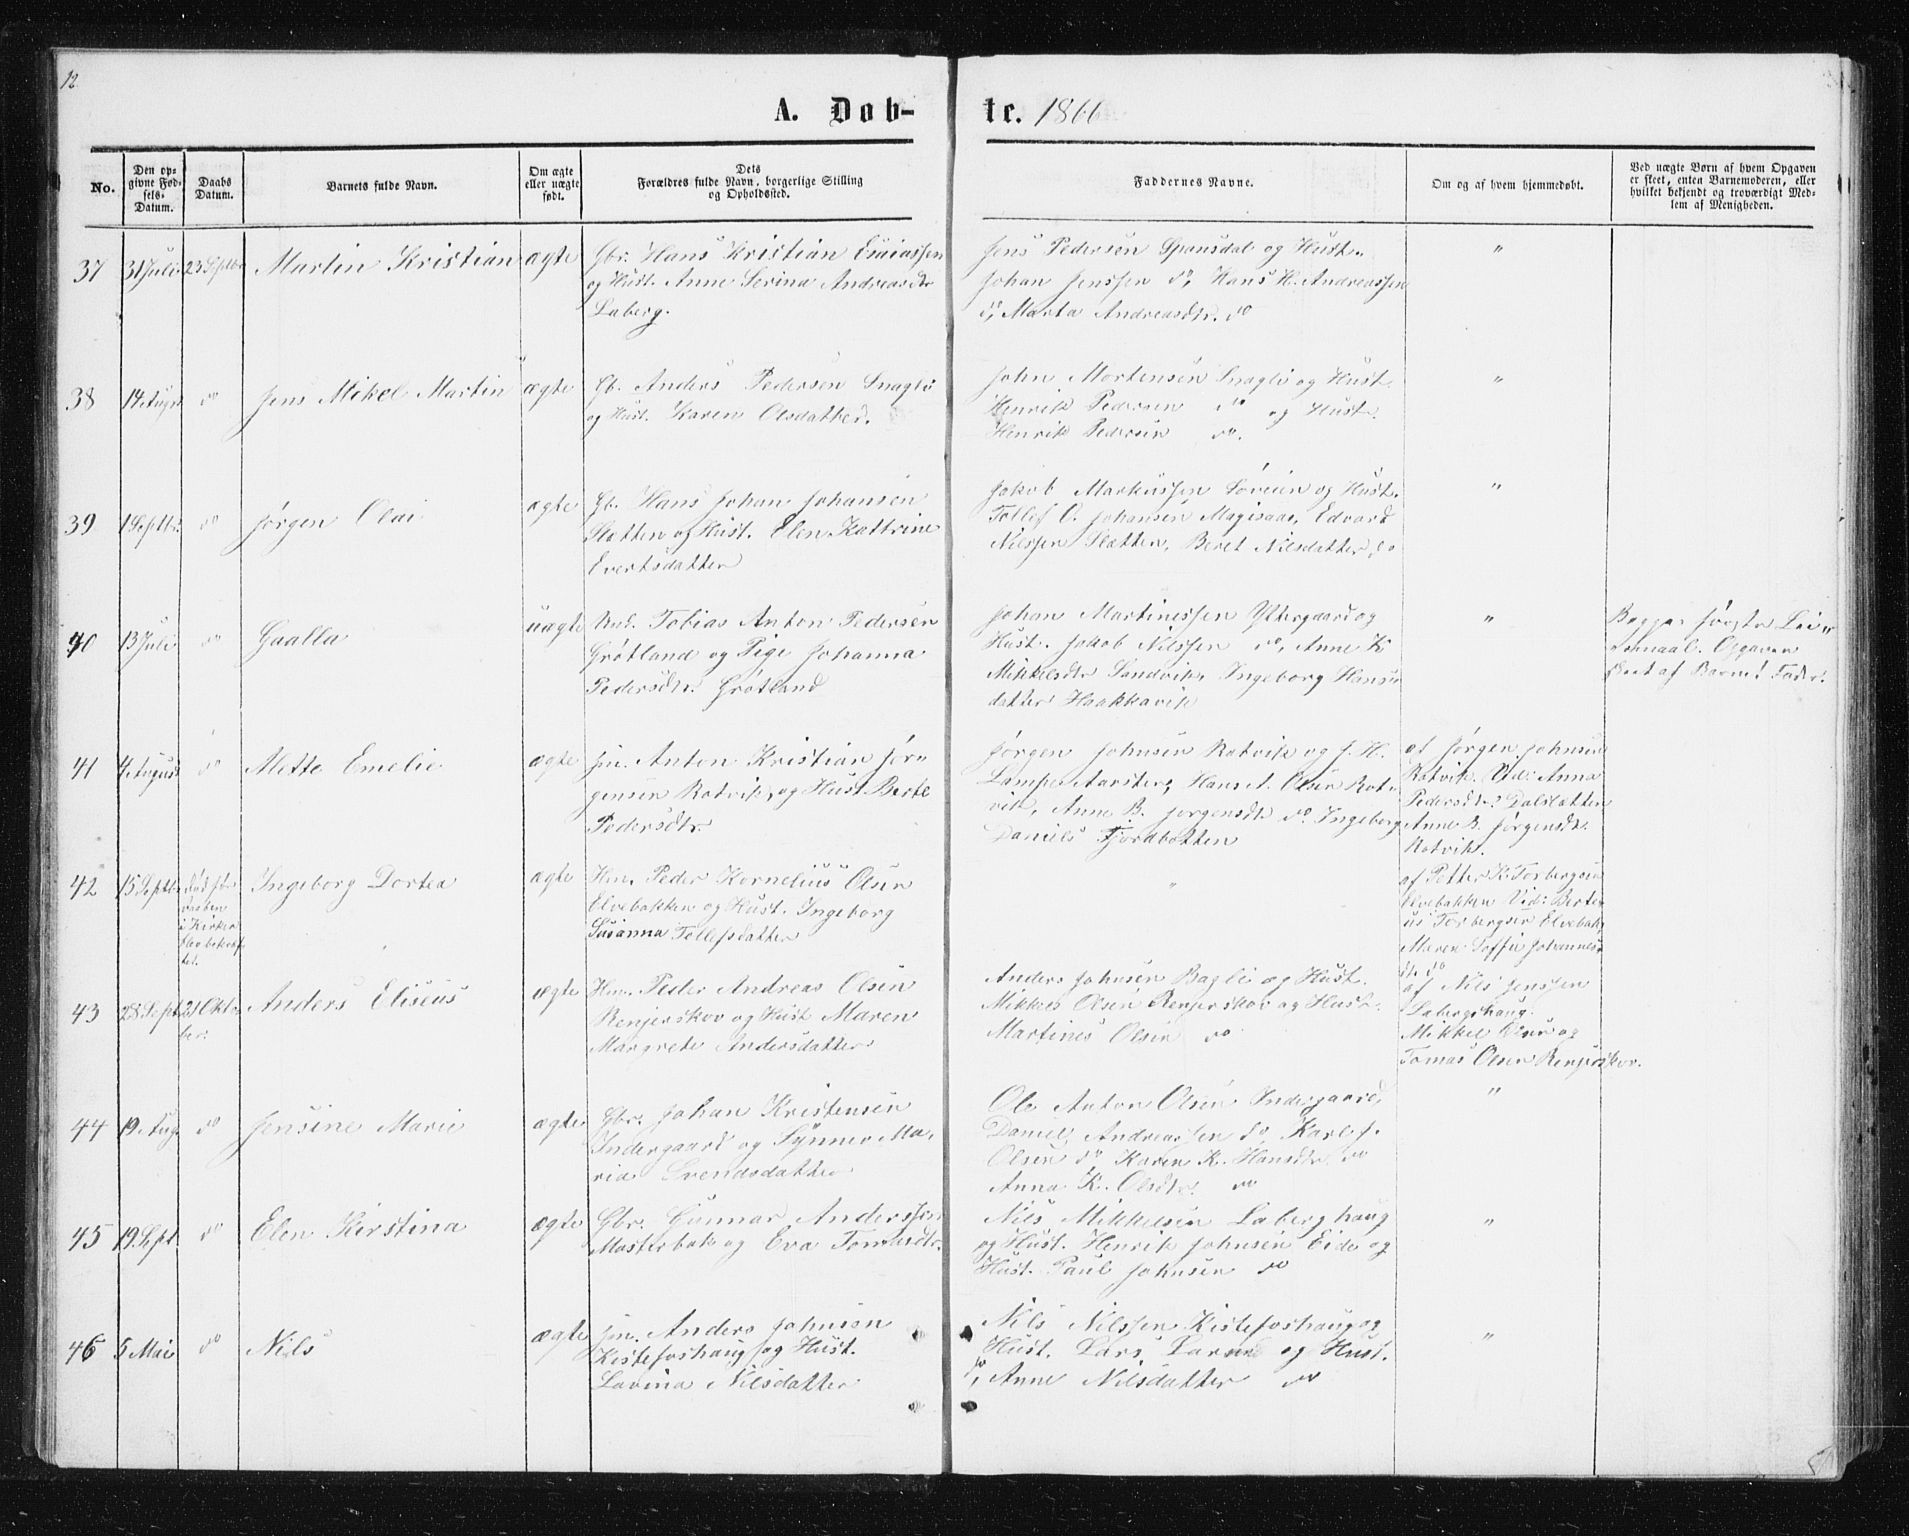 12
A. Døb-
te. 1866
No.
Den op-
givne Fød-
sels-
Datum.
Daabs
Datum.
Barnets fulde Navn.
Om ægte
eller uægte
født.
Dets
Forældres fulde Navn, borgerlige Stilling
og Opholdssted.
Faddernes Navne.
Om og af hvem hjemmedøbt.
Ved uægte Børn af hvem Opgaven
er skeet, enten Barnemoderen, eller
hvilket bekjendt og troværdigt Med-
lem af Menigheden.
37
31 Juli
23 Septbr
Martin Kristian
ægte
Gbr. Hans Kristian Esaiassen
og Hust. Anne Serina Andreasdtr
Laberg.
Jens Pedersen Spansdal og Hustr.
Johan Jenssen do, Hans H. Andreassen
do, Marta Andreasdtr. do
"
38
14 Augs
do
Jens Mikel Martin
ægte
Gb. Anders Pedersen Snagli
og Hust. Karen Olsdatter.
John Mortensen Snagli og Hust.
Henrik Pedersen do og Hustr.
Henrik Pedersen do.
"
39
1 Septbr
do
Jørgen Olai
ægte
Gb. Hans Johan Johansen
Slætten og Hust. Elen Kattrine
Evertsdatter
Jakob Markussen Søveien og Hust.
Tollef O. Johansen Magisaas, Edvard
Nilssen Slætten, Beret Nilsdatter do
"
40
13 Juli
do
Gaalla
uægte
Und. Tobias Anton Pedersen
Grøtland og Pige Johanna
Pedersdtr. Grøtland
Johan Martinessen Yttergaard og
Hust. Jakob Nilssen do, Anne K
Mikkelsdtr Sandvik, Ingeborg Hans-
datter Haakkavik
"
Begges første Lei-
ermaal. Opgaven
skeet af Barnets Fader.
41
4 August
do
Mette Emelie
ægte
Jm. Anton Kristian Jør-
gensen Rotvik, og Hust Berte
Pedersdtr.
Jørgen Johnsen Rotvik og J. H.
Lampe Aarstein, Hans A. Olsen Rot-
vik, Anne B. Jørgensdtr do Ingeborg
Daniels Fjordbotten
af Jørgen Johnsen
Rotvik. Vid: Anna
Pedersdtr. Dalslætten
Anne B. Jørgensdtr.
Rotvik.
42
15 Septbr
død før
daaben
i Kirken
blev bekræf-
tet.
Ingeborg Dortea
ægte
Hm. Peder Kornelius Olsen
Elvebakken og Hust. Ingeborg
Susanna Tollefsdatter
"
af Petter K. Torbergsen
Elvebakken Vid: Berte-
us Torbergsen Elvebak,
Maren Soffie Johannes-
dtr. do
43
28 Sept
21 Okto-
ber.
Anders Eliseus
ægte
Hm. Peder Andreas Olsen
Renjerskov og Hust Maren
Margrete Andersdatter
Anders Johnsen Bagli og Hust.
Mikkel Olsen Renjerskov og Hust.
Martines Olsen do
af Nils Jenssen
Labergshaug.
Mikkel Olsen og
Tomas Olsen Renjerskov.
44
19 Aug.
do
Jensine Marie
ægte
Gbr. Johan Kristensen
Indergaard og Synnev Ma-
ria Svendsdatter
Ole Anton Olsen Indergaard,
Daniel Andreassen do, Karl J.
Olsen do, Karen K. Hansdtr. do
Anna K. Olsdtr. do
"
45
19 Sept
do
Elen Kirstina
ægte
Gbr. Gunnar Anderssen
Mosterbak og Eva Tomasdtr.
Nils Mikkelsen Laberghaug
og Hust. Henrik Johnsen Eide og
Hust. Paul Johnsen do
"
46
5 Mai
do
Nils
ægte
Jm. Anders Johnsen
Kistefoshaug og Hust.
Lovina Nilsdatter
Nils Nilssen Kistefoshaug og
Hust. Lars Larsen og Hust.
do, Anne Nilsdatter do
"